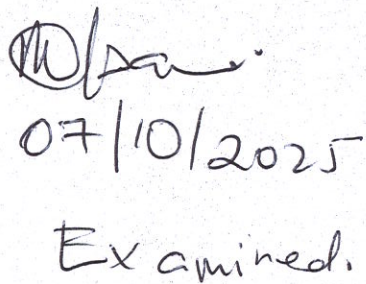 07/10/2025
Examined.